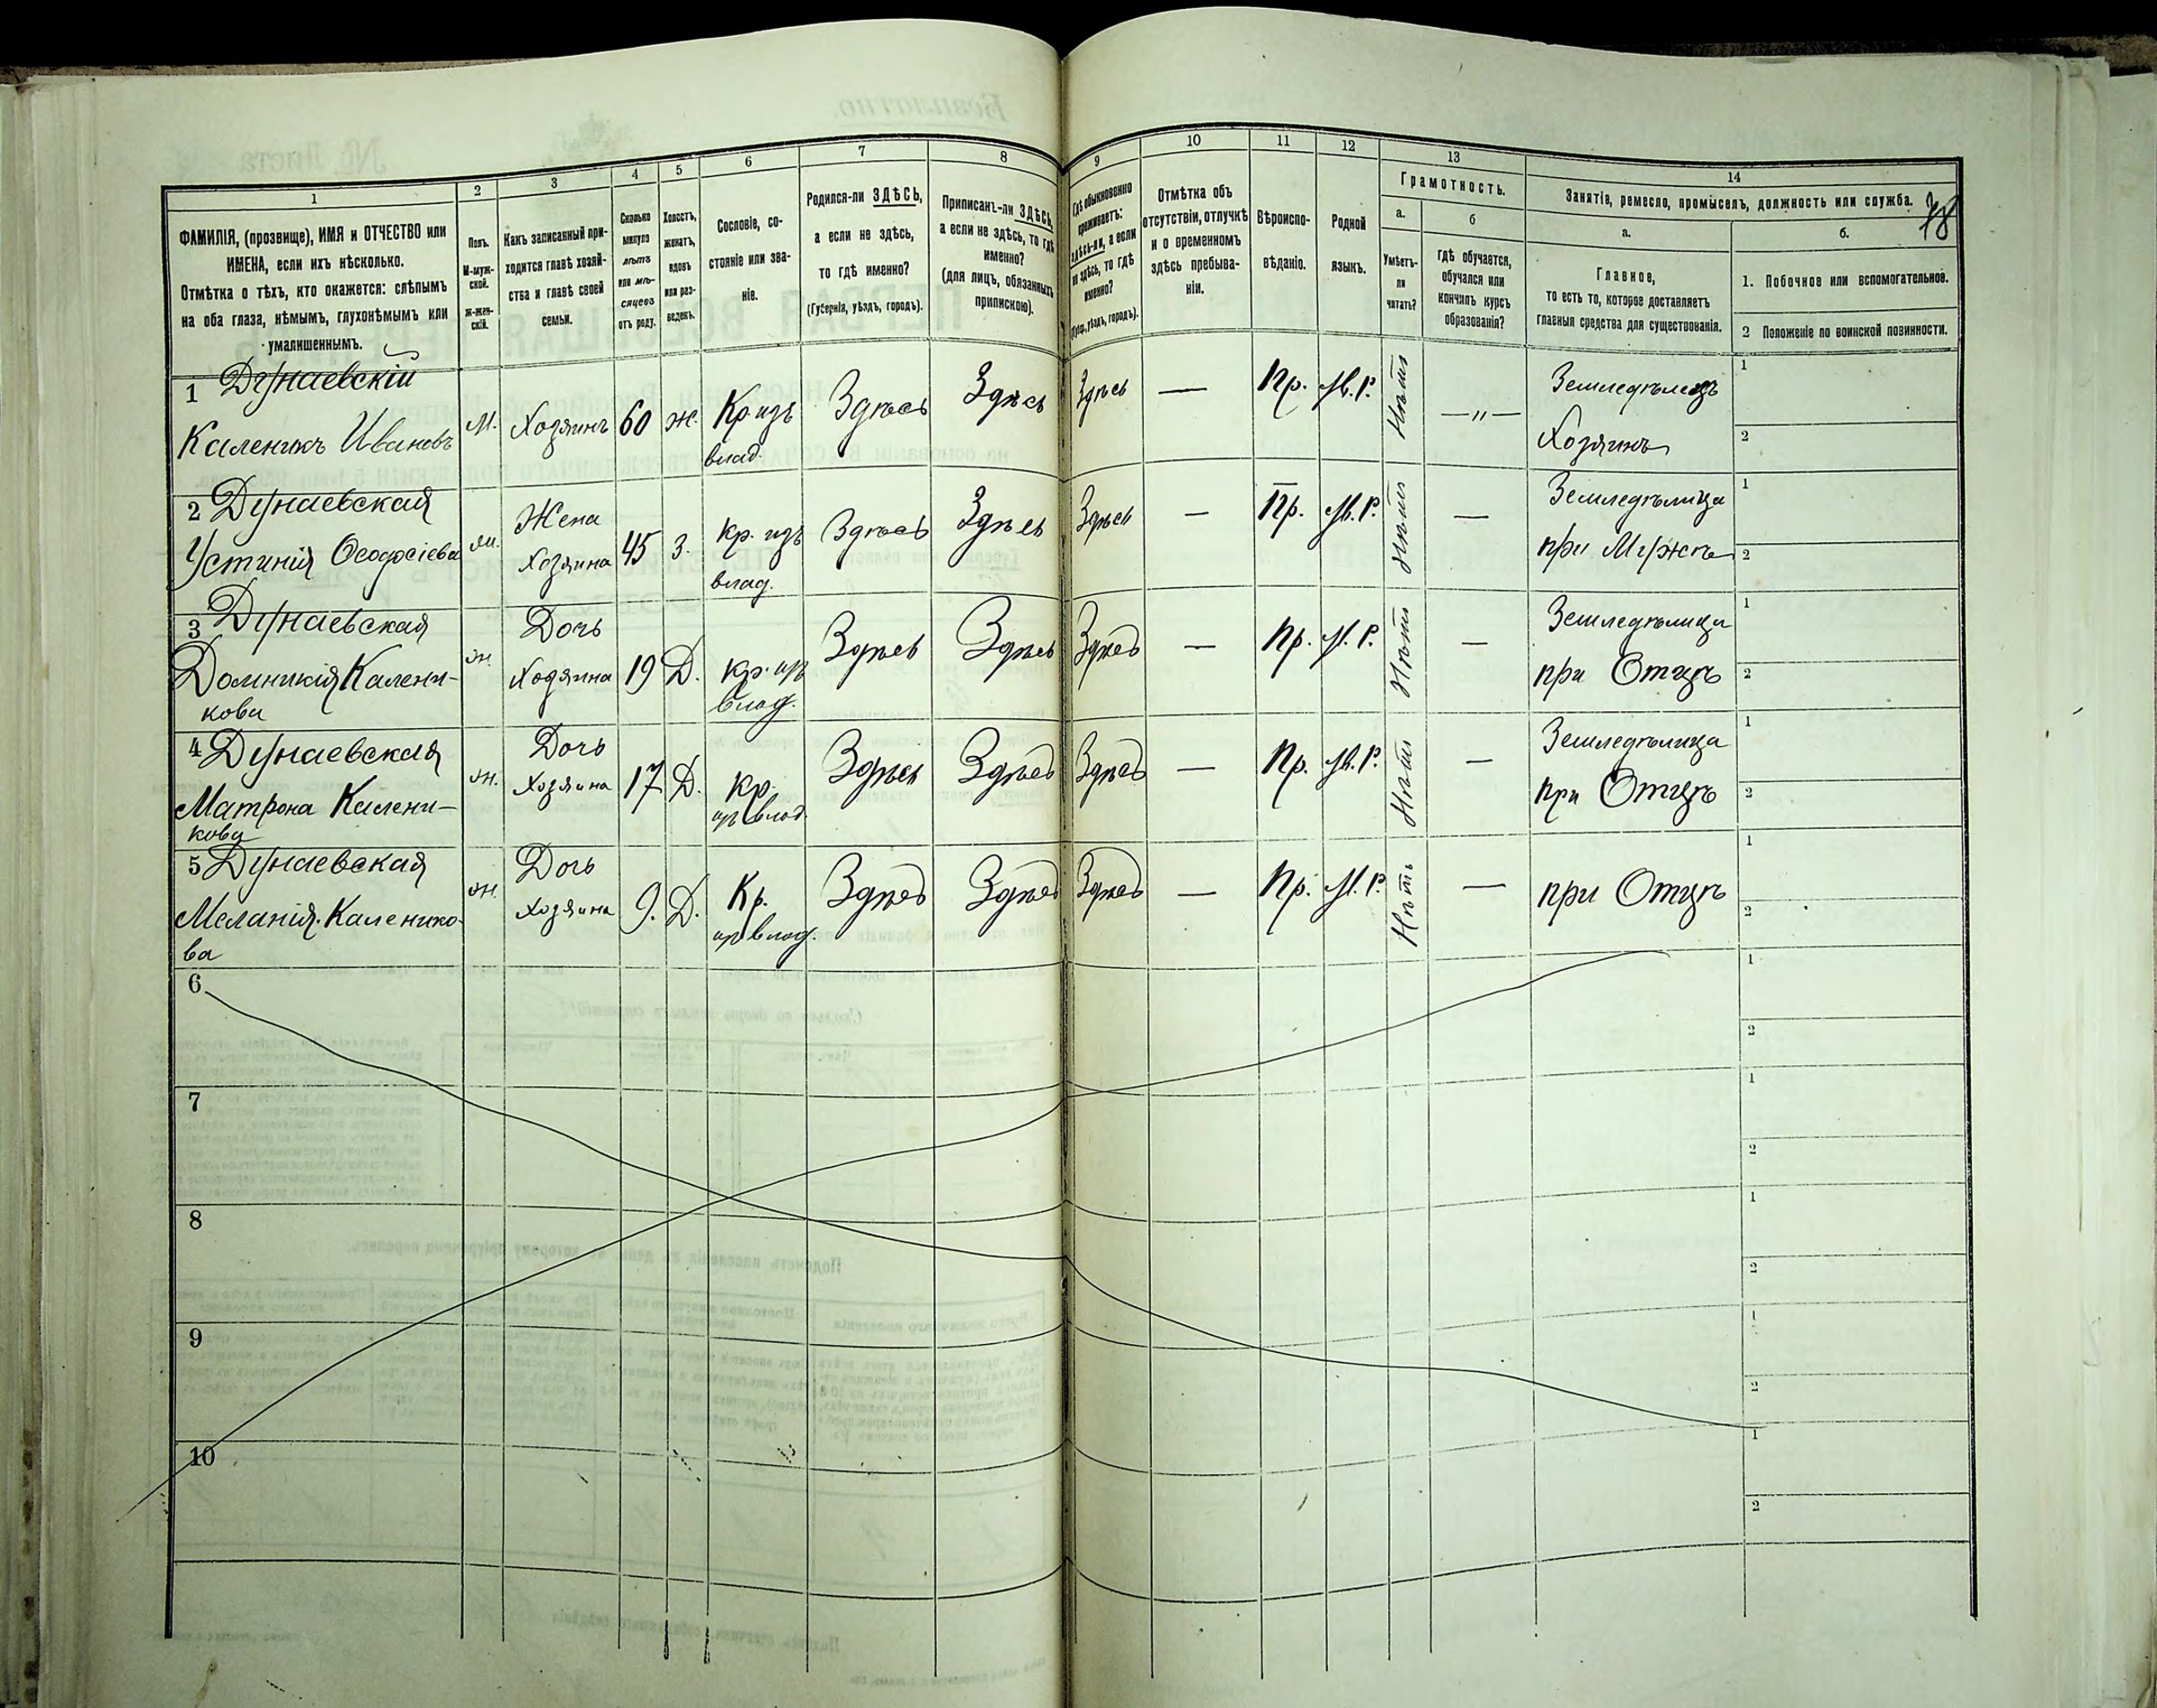 1 2 3 4 5 6 7 8 9 10 11 12 13 14
78
ФАМИЛІЯ, (прозвище), ИМЯ и ОТЧЕСТВО или
ИМЕНА, если ихъ нѣсколько.
Отмѣтка о тѣхъ, кто окажется: слѣпымъ
на оба глаза, нѣмымъ, глухонѣмымъ или
умалишеннымъ.
Полъ.
М-муж-
ской.
Ж-жен-
скій.
Какъ записанный при-
ходится главѣ хозяй-
ства и главѣ своей
семьи.
Сколько
минуло
лѣтъ
или мѣ-
сяцевъ
отъ роду.
Холостъ,
женатъ,
вдовъ
или раз-
веденъ.
Сословіе, со-
стояніе или зва-
ніе.
Родился-ли ЗДѢСЬ,
а если не здѣсь,
то гдѣ именно?
(Губернія, уѣздъ, городъ).
Приписанъ-ли ЗДѢСЬ,
а если не здѣсь, то гдѣ
именно?
(для лицъ, обязанныхъ
припискою).
Гдѣ обыкновенно
проживаетъ:
здѣсь-ли, а если
не здѣсь, то гдѣ
именно?
(Губ., уѣздъ, городъ).
Отмѣтка объ
отсутствіи, отлучкѣ
и о временномъ
здѣсь пребыва-
ніи.
Вѣроиспо-
вѣданіе.
Родной
языкъ.
Грамотность.
а.
Умѣетъ-
ли
читать?
б
гдѣ обучается,
обучался или
кончилъ курсъ
образованія?
Занятія, ремесло, промыселъ, должность или служба.
а.
Главное,
то есть то, которое доставляетъ
главныя средства для существованія.
б.
1. Побочное или вспомогательное.
2 Положеніе по воинской повинности.
1 Дунаевскій
Каленикъ Ивановъ
М.
Хозяинъ
60
Ж.
Кр. изъ
влад.
Здѣсь
Здѣсь
Здѣсь
—
Пр.
М.Р.
Нѣтъ
— „ —
Земледѣлецъ
Хозяинъ
1
2
2 Дунаевская
Устинія Ѳеодосіева
Ж.
Жена
Хозяина
45
З.
Кр. изъ
влад.
Здѣсь
Здѣсь
Здѣсь
—
Пр.
М.Р.
Нѣтъ
—
Земледѣлица
при Мужѣ
1
2
3 Дунаевская
Домникія Калени-
кова
Ж.
Дочь
Хозяина
19
Д.
Кр. изъ
влад.
Здѣсь
Здѣсь
Здѣсь
—
Пр.
М.Р.
Нѣтъ
—
Земледѣлица
при Отцѣ
1
2
4 Дунаевская
Матрона Калени-
кова
Ж.
Дочь
Хозяина
17
Д.
Кр.
изъ влад.
Здѣсь
Здѣсь
Здѣсь
—
Пр.
М.Р.
Нѣтъ
—
Земледѣлица
при Отцѣ
1
2
5 Дунаевская
Меланія Каленико-
ва
Ж.
Дочь
Хозяина
9.
Д.
Кр.
изъ влад.
Здѣсь
Здѣсь
Здѣсь
—
Пр.
М.Р.
Нѣтъ
—
при Отцѣ
1
2
6
1
2
7
1
2
8
1
2
9
1
2
10
1
2